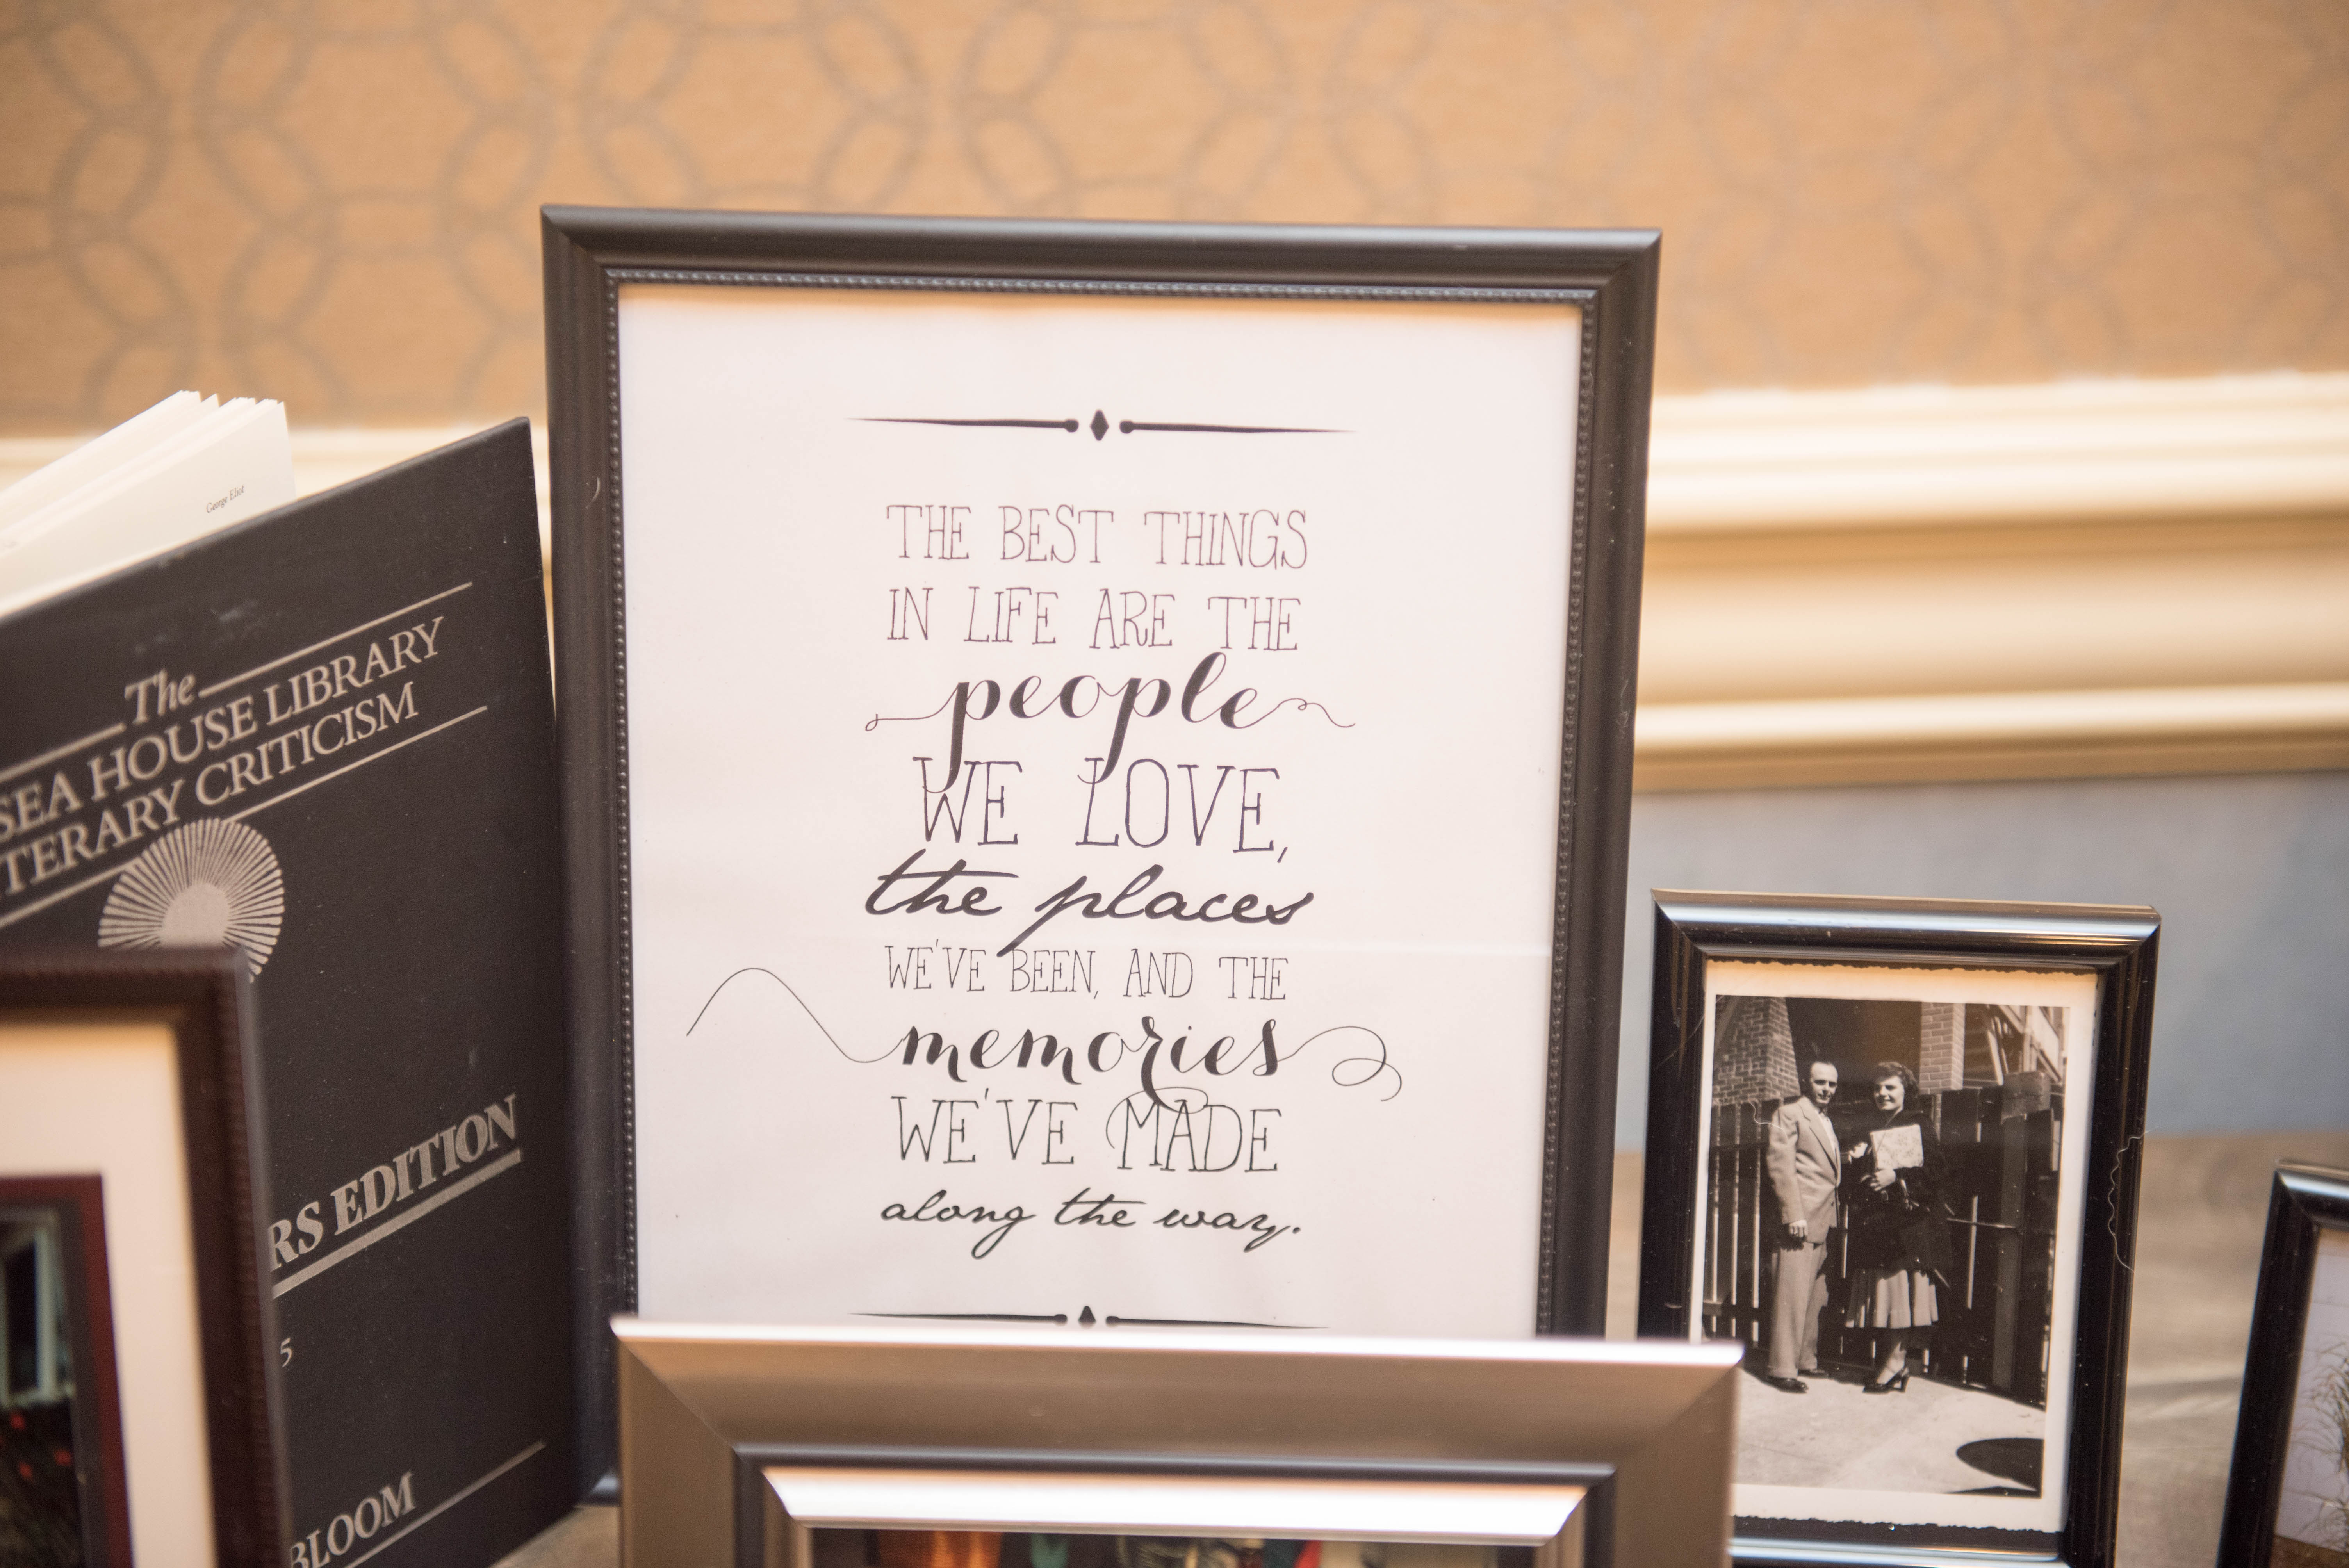 George Eliot
The
SEA HOUSE LIBRARY
TERARY CRITICISM
RS EDITION
5
BLOOM
THE BEST THINGS
IN LIFE ARE THE
people
WE LOVE,
the places
WE'VE BEEN, AND THE
memories
WE'VE MADE
along the way.